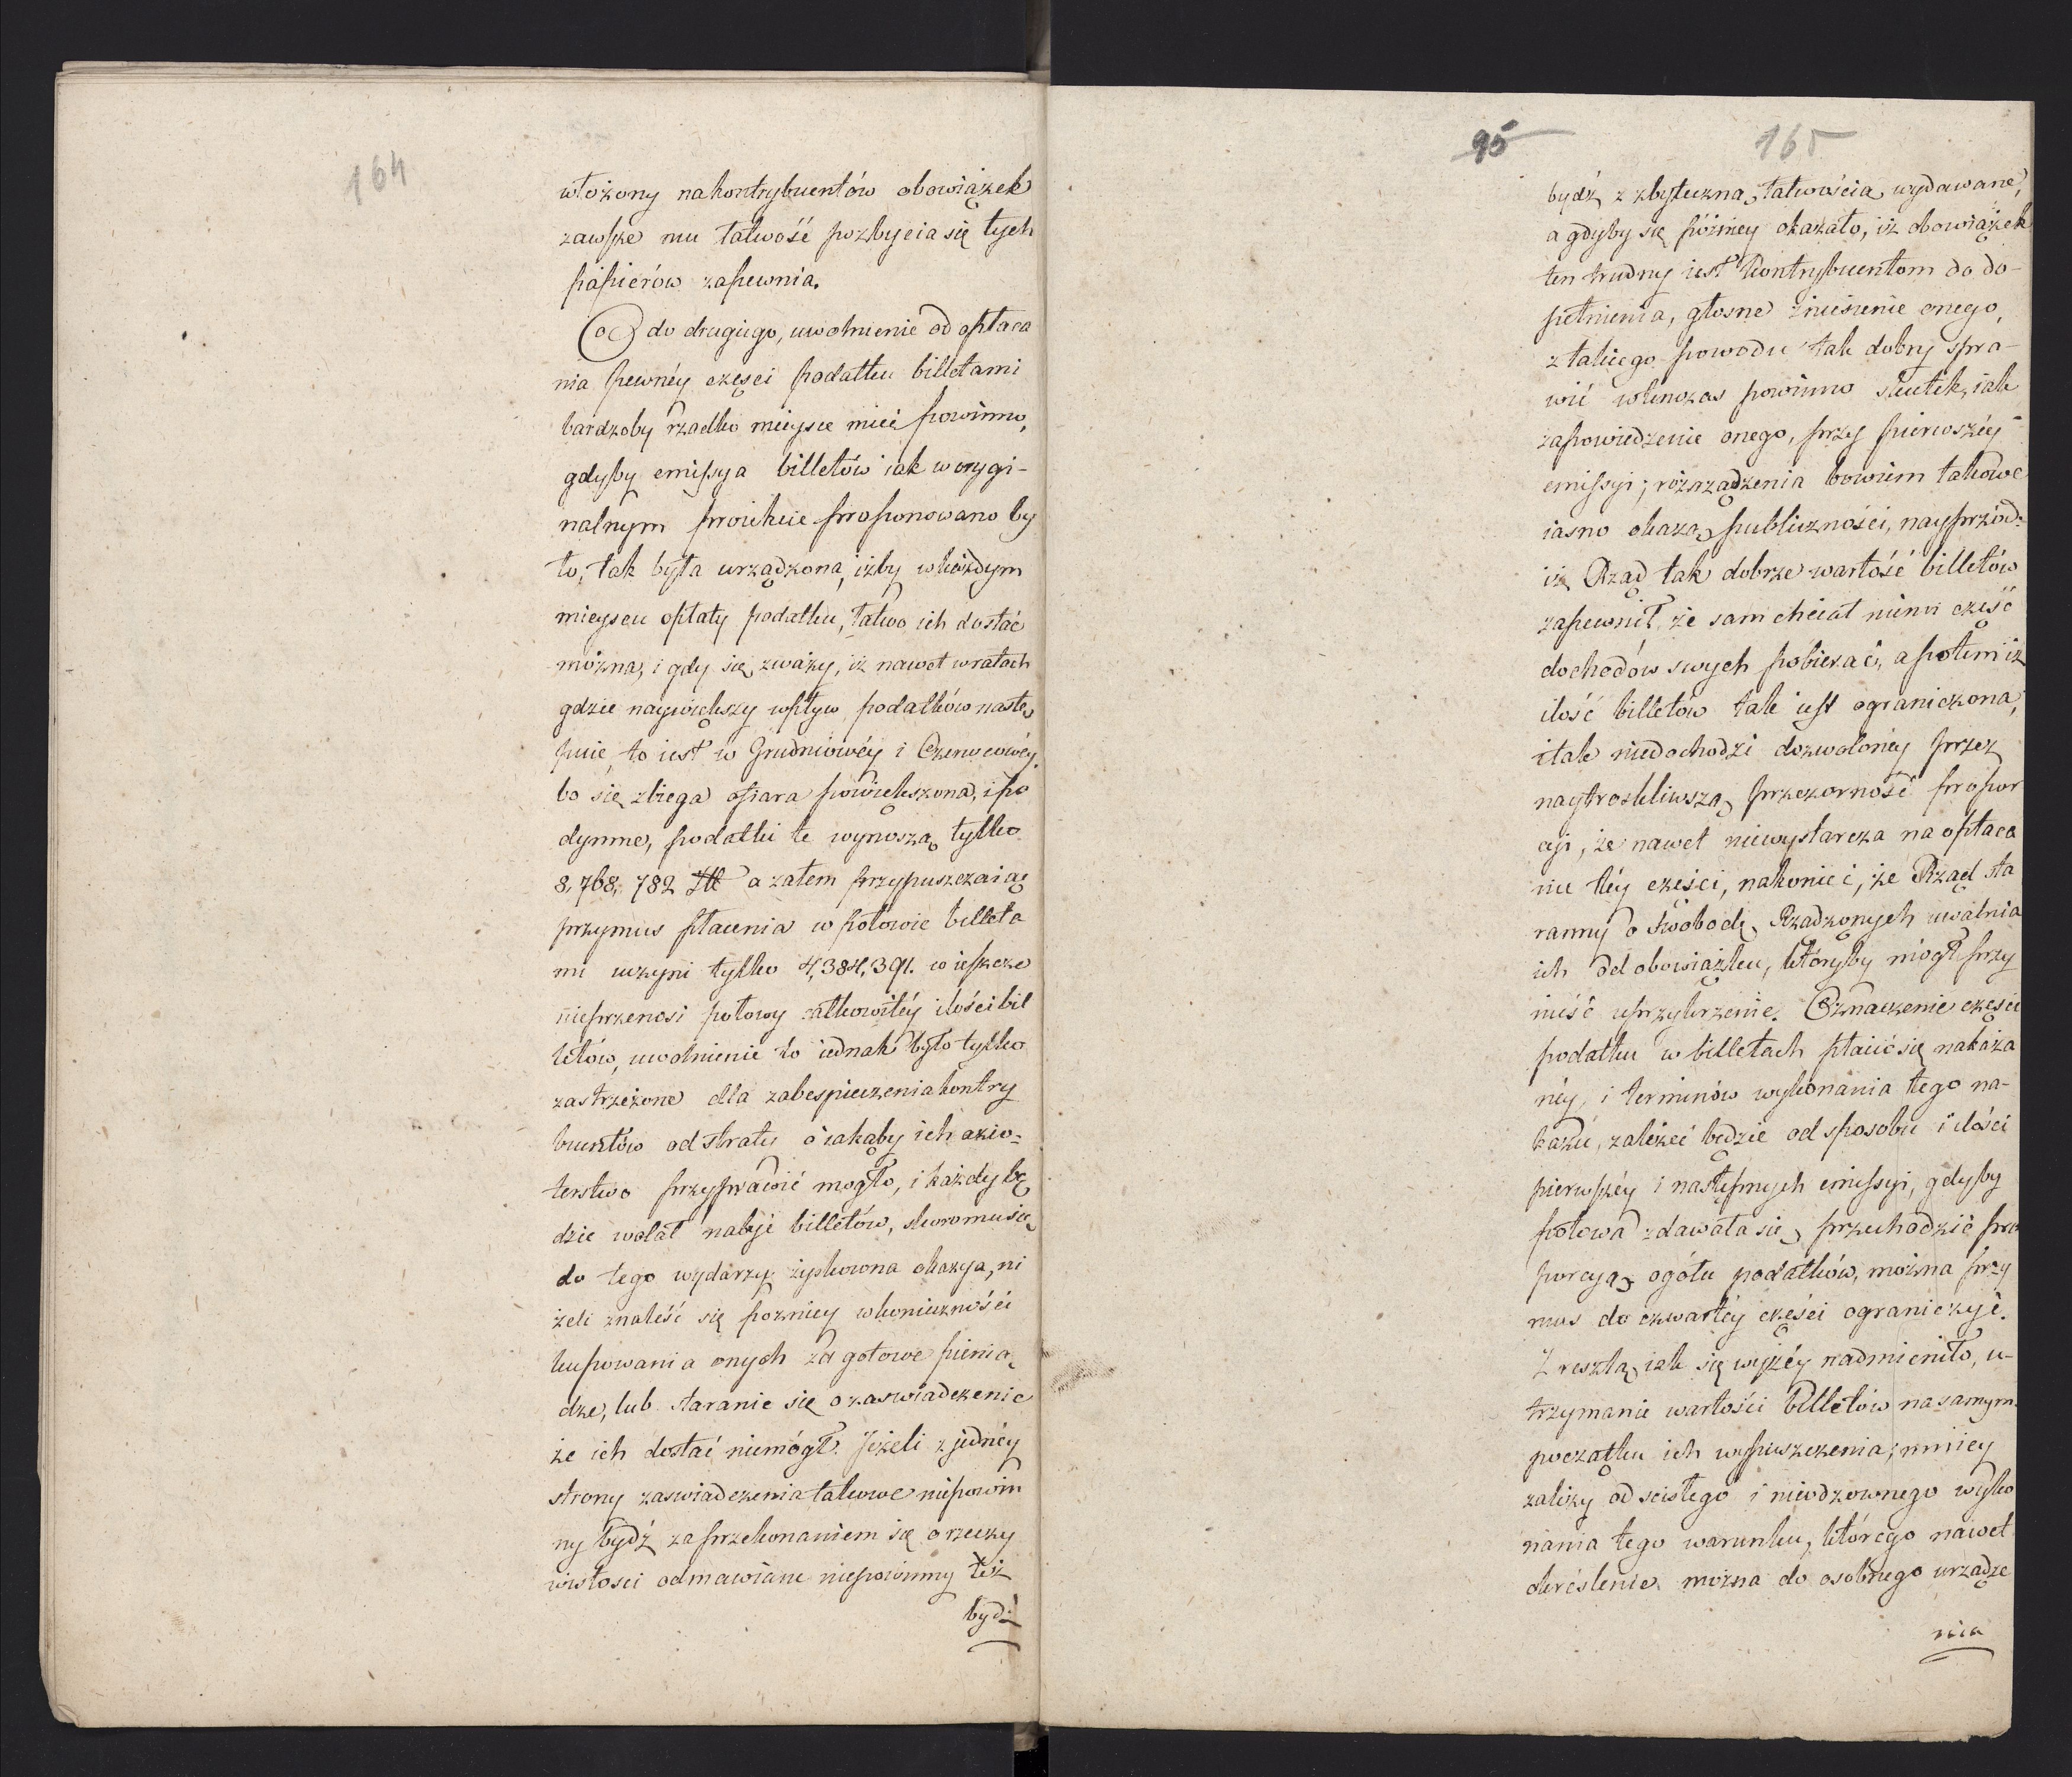 164
włożony na kontrybuentów obowiązek
zawsze mu łatwość pozbycia się tych
papierów zapewnia.
Co do drugiego, uwolnienie od opłaca
nia pewnéy częsci podatku billetami
bardzoby rzadko mieysce mieć powinno,
gdyby emissya billetów iak w orygi-
nalnym proiekcie proponowano by
ło, tak była urządzona, iżby w każdym
mieyscu opłaty podatku, łatwo ich dostać
można, i gdy się zważy, iż nawet w ratach
gdzie naywiększy wpływ podatków nastę
puie, to iest w Grudniowéy i Czerwcowéy
bo się zbiega ofiara powiększona, i po
dymne, podatki te wynoszą tylko
8,768,782 Zł a zatem przypuszczaiąc
przymus płacenia w połowie billeta
mi uczyni tylko 4,384,391. w ieszcze
nieprzenosi połowy całkowitéy ilości bil
letów, uwolnienie to iednak było tylko
zastrzeżone dla zabespieczenia kontry
buentów od straty o iakąby ich axio-
terstwo przyprawić mogło, i każdy bę
dzie wolał nabyć billetów, skoro mu się
do tego wydarzy zyskowna okazya, ni
żeli znaleść się pozniey w konieczności
kupowania onych za gotowe pienią
dze, lub staranie się o zaswiadczenie
że ich dostać niemógł. Jeżeli z jednéy
strony zaswiadczenia takowe niepowin
ny bydź za przekonaniem się o rzeczy
wistosci odmawiane niepowinny też
bydź
95 165
bydź z zbyteczną łatwością wydawane,
a gdyby się póżniey okazało, iż obowiązek
ten trudny iest Kontrybuentom do do-
pełnienia, głosne zniesienie onego,
z takiego powodu tak dobry spra-
wić wówczas powinno skutek, iak
zapowiedzenie onego, przy pierwszéy
emissyi; rózrządzenia bowiem takowe
iasno okażą publiczności, nayprzód:
iż Rząd tak dobrze wartość billetów
zapewnił, że sam chciał niémi część
dochodów swych pobierać, a potem iż
ilość billetów tak iest ograniczona,
i tak niedochodzi dozwolonéy przez
naytroskliwszą przezorność propor
cyi, że nawet niewystarcza na opłaca
nie téy części, nakoniec, że Rząd sta
ranny o swobodę Rządzonych uwalnia
ich od obowiązku, któryby mógł przy
nieść uprzykrzenie. Oznaczenie części
podatku w billetach płacić się nakaza
néy, i terminów wykonania tego na-
kazu, zależeć będzie od sposobu i ilości
pierwszéy i następnych emissyi, gdyby
połowa zdawała się przechodzić pro
porcyą ogółu podatków, można przy
mus do czwartéy części ograniczyć.
Z resztą, iak się wyżéy nadmieniło, u-
trzymanie wartości Billetów na samym
początku ich wypuszczenia; mniey
zależy od scisłego i nieodzownego wyko
nania tego warunku, którego nawet
określenie można do osobnego urządze
nia